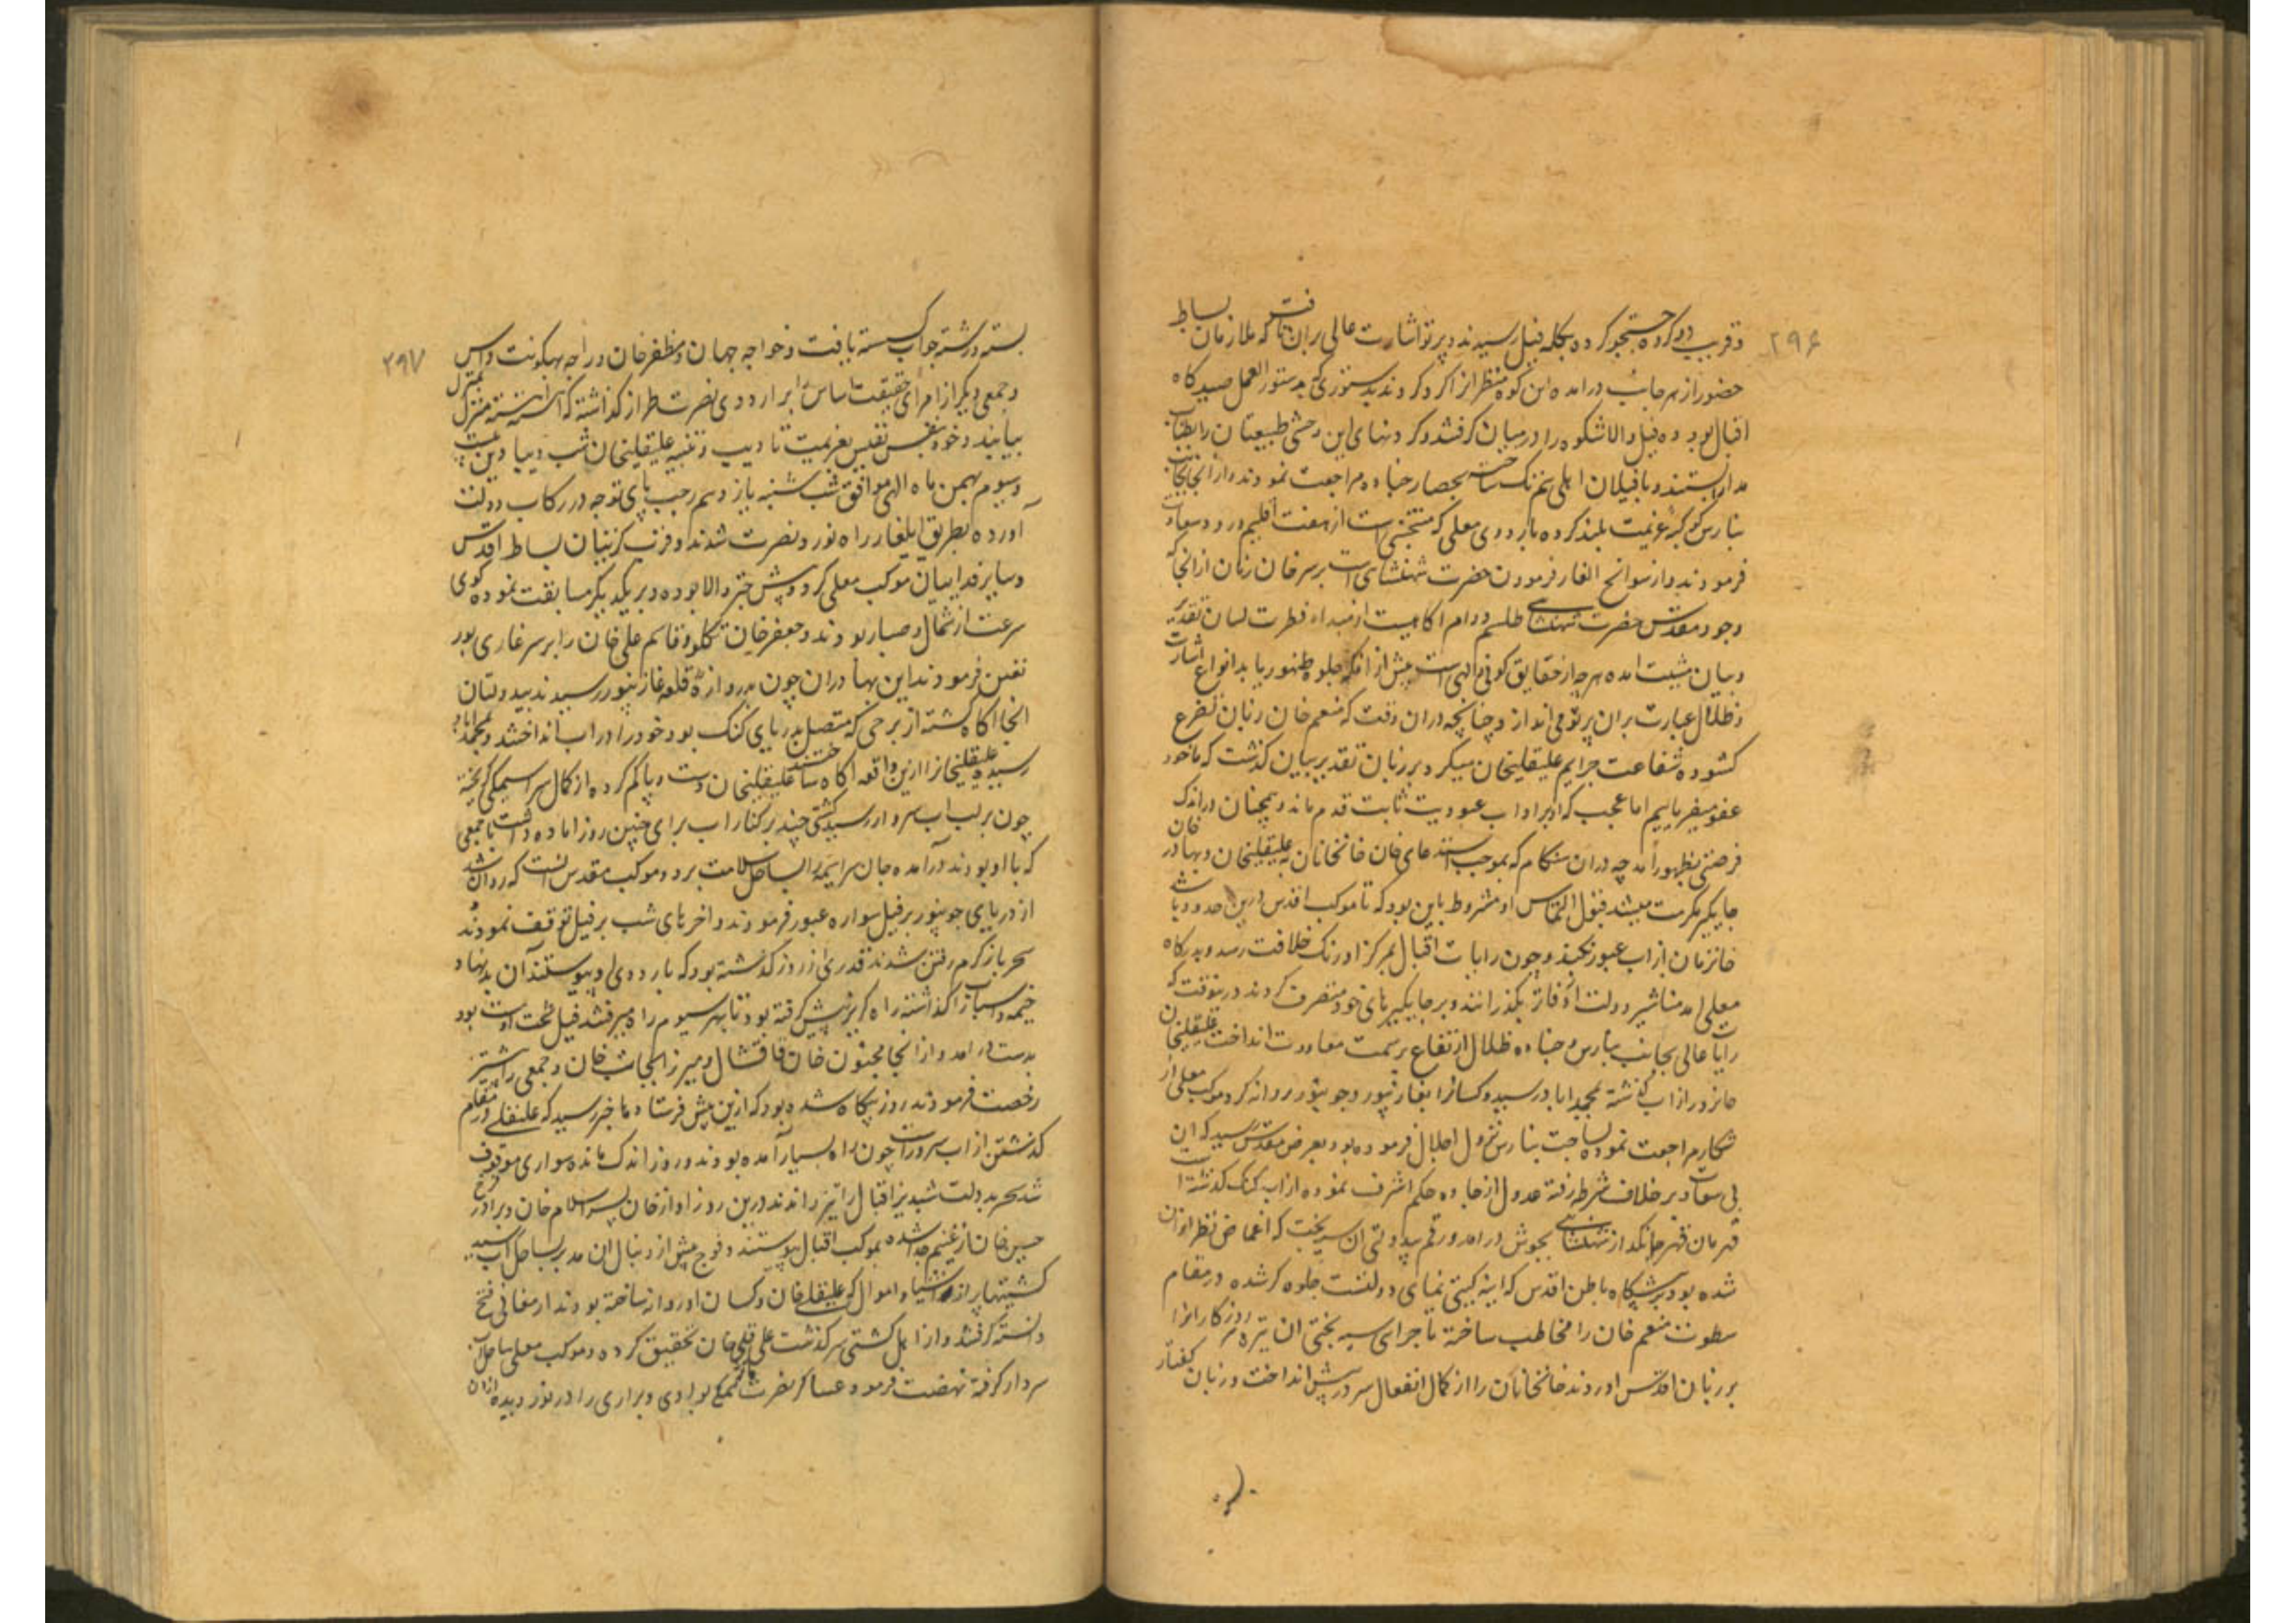 ۲۹۶
و قریب دو کروه جستجو کرده بگله فیل رسیدند و پرتو اشارت عالی بران تافت که ملازمان بساط
حضور از هر جانب درامده این کوه منظر انرا کرد کردند بدستوری که بدستور العمل صیدکاه
اقبال بود ده فیل والاشکوه را درمیان کرفتند و کردنهای این وحشی طبیعتان را بطناب
مدارا بستند و با فیلان اهلی هم تنک ساخته بحصار چناده مراجعت نمودند و از انجا بجانب
بنارس کوکبهٔ عزیمت بلند کرده باردوی معلی که منتخبی است از هفت اقلیم ورود سعادت
فرمودند و از سوانح الغار فرمودن حضرت شهنشاهی است بر سر خان زمان از انجا که
وجود مقدس حضرت شهنشاهی طلسم دوام اکاهیست از مبداء فطرت لسان تقدیر
و بیان مشیت امده هرچه از حقایق کونی و الهی است پیش از انکه جلوه ظهور یابد انواع اشارت
و ظلال عبارت بران پرتو می اندازد چنانچه دران وقت که منعم خان زبان تضرع
کشوده شفاعت جرایم علیقلیخان میکرد بر زبان تقدیر بیان کذشت که ما خود
عفو میفرماییم اما عجب که او بر اداب عبودیت ثابت قدم ماند و همچنان در اندک
فرصتی بظهور آمد چه دران هنکام که بموجب استدعای خان خانخانان به علیقلیخان و بهادر خان
جایکیر مکرمت میشد قبول التماس او مشروط باین بود که تا موکب اقدس درین حدود باشد
خانزمان از اب عبور نکند و چون رایات اقبال بمرکز اورنک خلافت رسد و بدرکاه
معلی امد مناشیر دولت او کذرانند و بر جایکیرهای خود متصرف کردند درینوقت که
رایات عالی بجانب بنارس و چناده ظلال ارتفاع بر سمت معاودت انداخت علیقلیخان
از اب کذشته بمحمداباد رسید و کسانرا بغازیپور و جونپور روانه کرد موکب معلی از
شکار مراجعت نموده بساحت بنارس نزول اجلال فرموده بود بعرض مقدس رسید که ان
بی سعادت بر خلاف شرط رفته عدول از جاده حکم اشرف نموده از اب کنک کذشته است
قهرمان قهر جانکداز شهنشاهی بجوش درامد و رقم بیدولتی ان سیه بخت که اغماض نظر ازان
شده بود بر پیشکاه باطن اقدس که اینه کیتی نمای دولتست جلوه کر شده در مقام
سطوت منعم خان را مخاطب ساخته ماجرای سیه بختی ان تیره روزکار انرا
بر زبان اقدس اوردند خانخانان را از کمال انفعال سر در پیش انداخت و زبان کفتار
۲۹۷
بسته و رشته جواب کسسته یافت و خواجه جهان و مظفر خان و راجه بهکونت داس
و جمعی دیکر از امرای حقیقت اساس را بر اردوی نصرت طراز کذاشته که اهسته اهسته منزل بمنزل
بیایند و خود بنفس نفیس بعزیمت تادیب و تنبیه علیقلیخان شب دیبا دین بیست
و سیوم بهمن ماه الهی موافق شب شنبه یازدهم رجب پای توجه در رکاب دولت
آورده بطریق ایلغار راه نورد نصرت شدند و قرب کزینان بساط اقدس
و سایر فداییان موکب معلی کرد و پیش چتر والا بوده و بر یکدیکر مسابقت نموده کوی
سرعت از شمال و صبا ربودند و جعفر خان تکلو و قاسم علی خان را بر سر غازی پور
تعین فرمودند این بهادران چون بدروازهٔ قلعه غازیپور رسیدند بیدولتان
انجا اکاه کشته از برجی که متصل بدریای کنک بود خود را در اب انداختند و بمحمداباد
رسیده علیقلیخانرا ازین واقعه اکاه ساختند علیقلیخان دست و پا کم کرده از کمال سراسیمکی کریخته
چون بر لب اب سروار رسید کشتی چند بر کنار اب برای چنین روز اماده داشت با جمعی
که با او بودند درآمده جان سراسیمه را بساحل سلامت برد و موکب مقدس که روان شد
از دریای جونپور بر فیل سواره عبور فرمودند و اخرهای شب بر فیل توقف نمودند
سحر باز کرم رفتن شدند قدری از روز کذشته بود که باردوی او پیوستند آن بدنهاد
خیمه و اسبابرا کذاشته راه کریز پیش کرفته بود تا پهر سیوم راه میرفتند فیل تخت اوست بود
بدست درامد و از انجا مجنون خان قاقشال و میرزا نجات خان و جمعی را پیشتر
رخصت فرمودند روز بیکاه شده بود که ازین پیش فرستادها خبر رسید که علیقلی در مقام
کذشتن از اب سروراست چون راه بسیار آمده بودند و روز اندک مانده سواری موقوف
شد سحر بدولت شبدیز اقبال را تیز راندند درین روز اوازخان پسر اسلام خان و برادر
حسین خان از غنیم جدا شده بموکب اقبال پیوستند و فوج پیش از دنبال ان مدبر بساحل اب رسیده
کشتیها پر از اشیا و اموال که علیقلی خان و کسان او روانه ساخته بودند از مغانی فتح
دانسته کرفتند و از اهل کشتی سرکذشت علی قلی خان تحقیق کرده و موکب معلی ساحل اب
سروار کرفته نهضت فرمود عساکر نصرت بوادی و براری را در نور دیده ازان